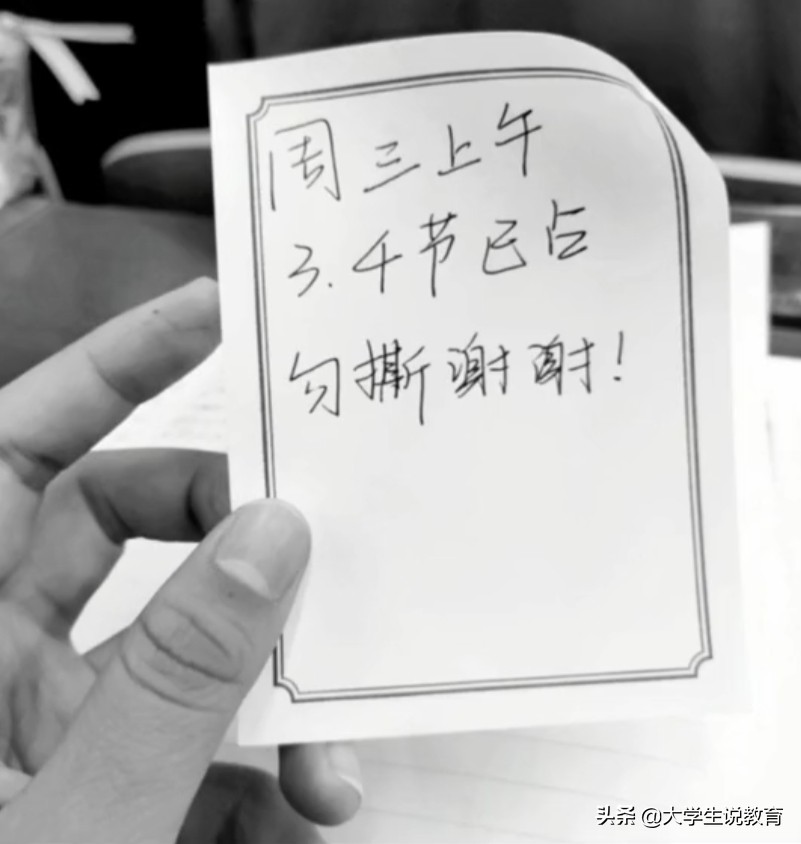 周三上午
3.4节已占
勿撕谢谢!
头条 @大学生说教育